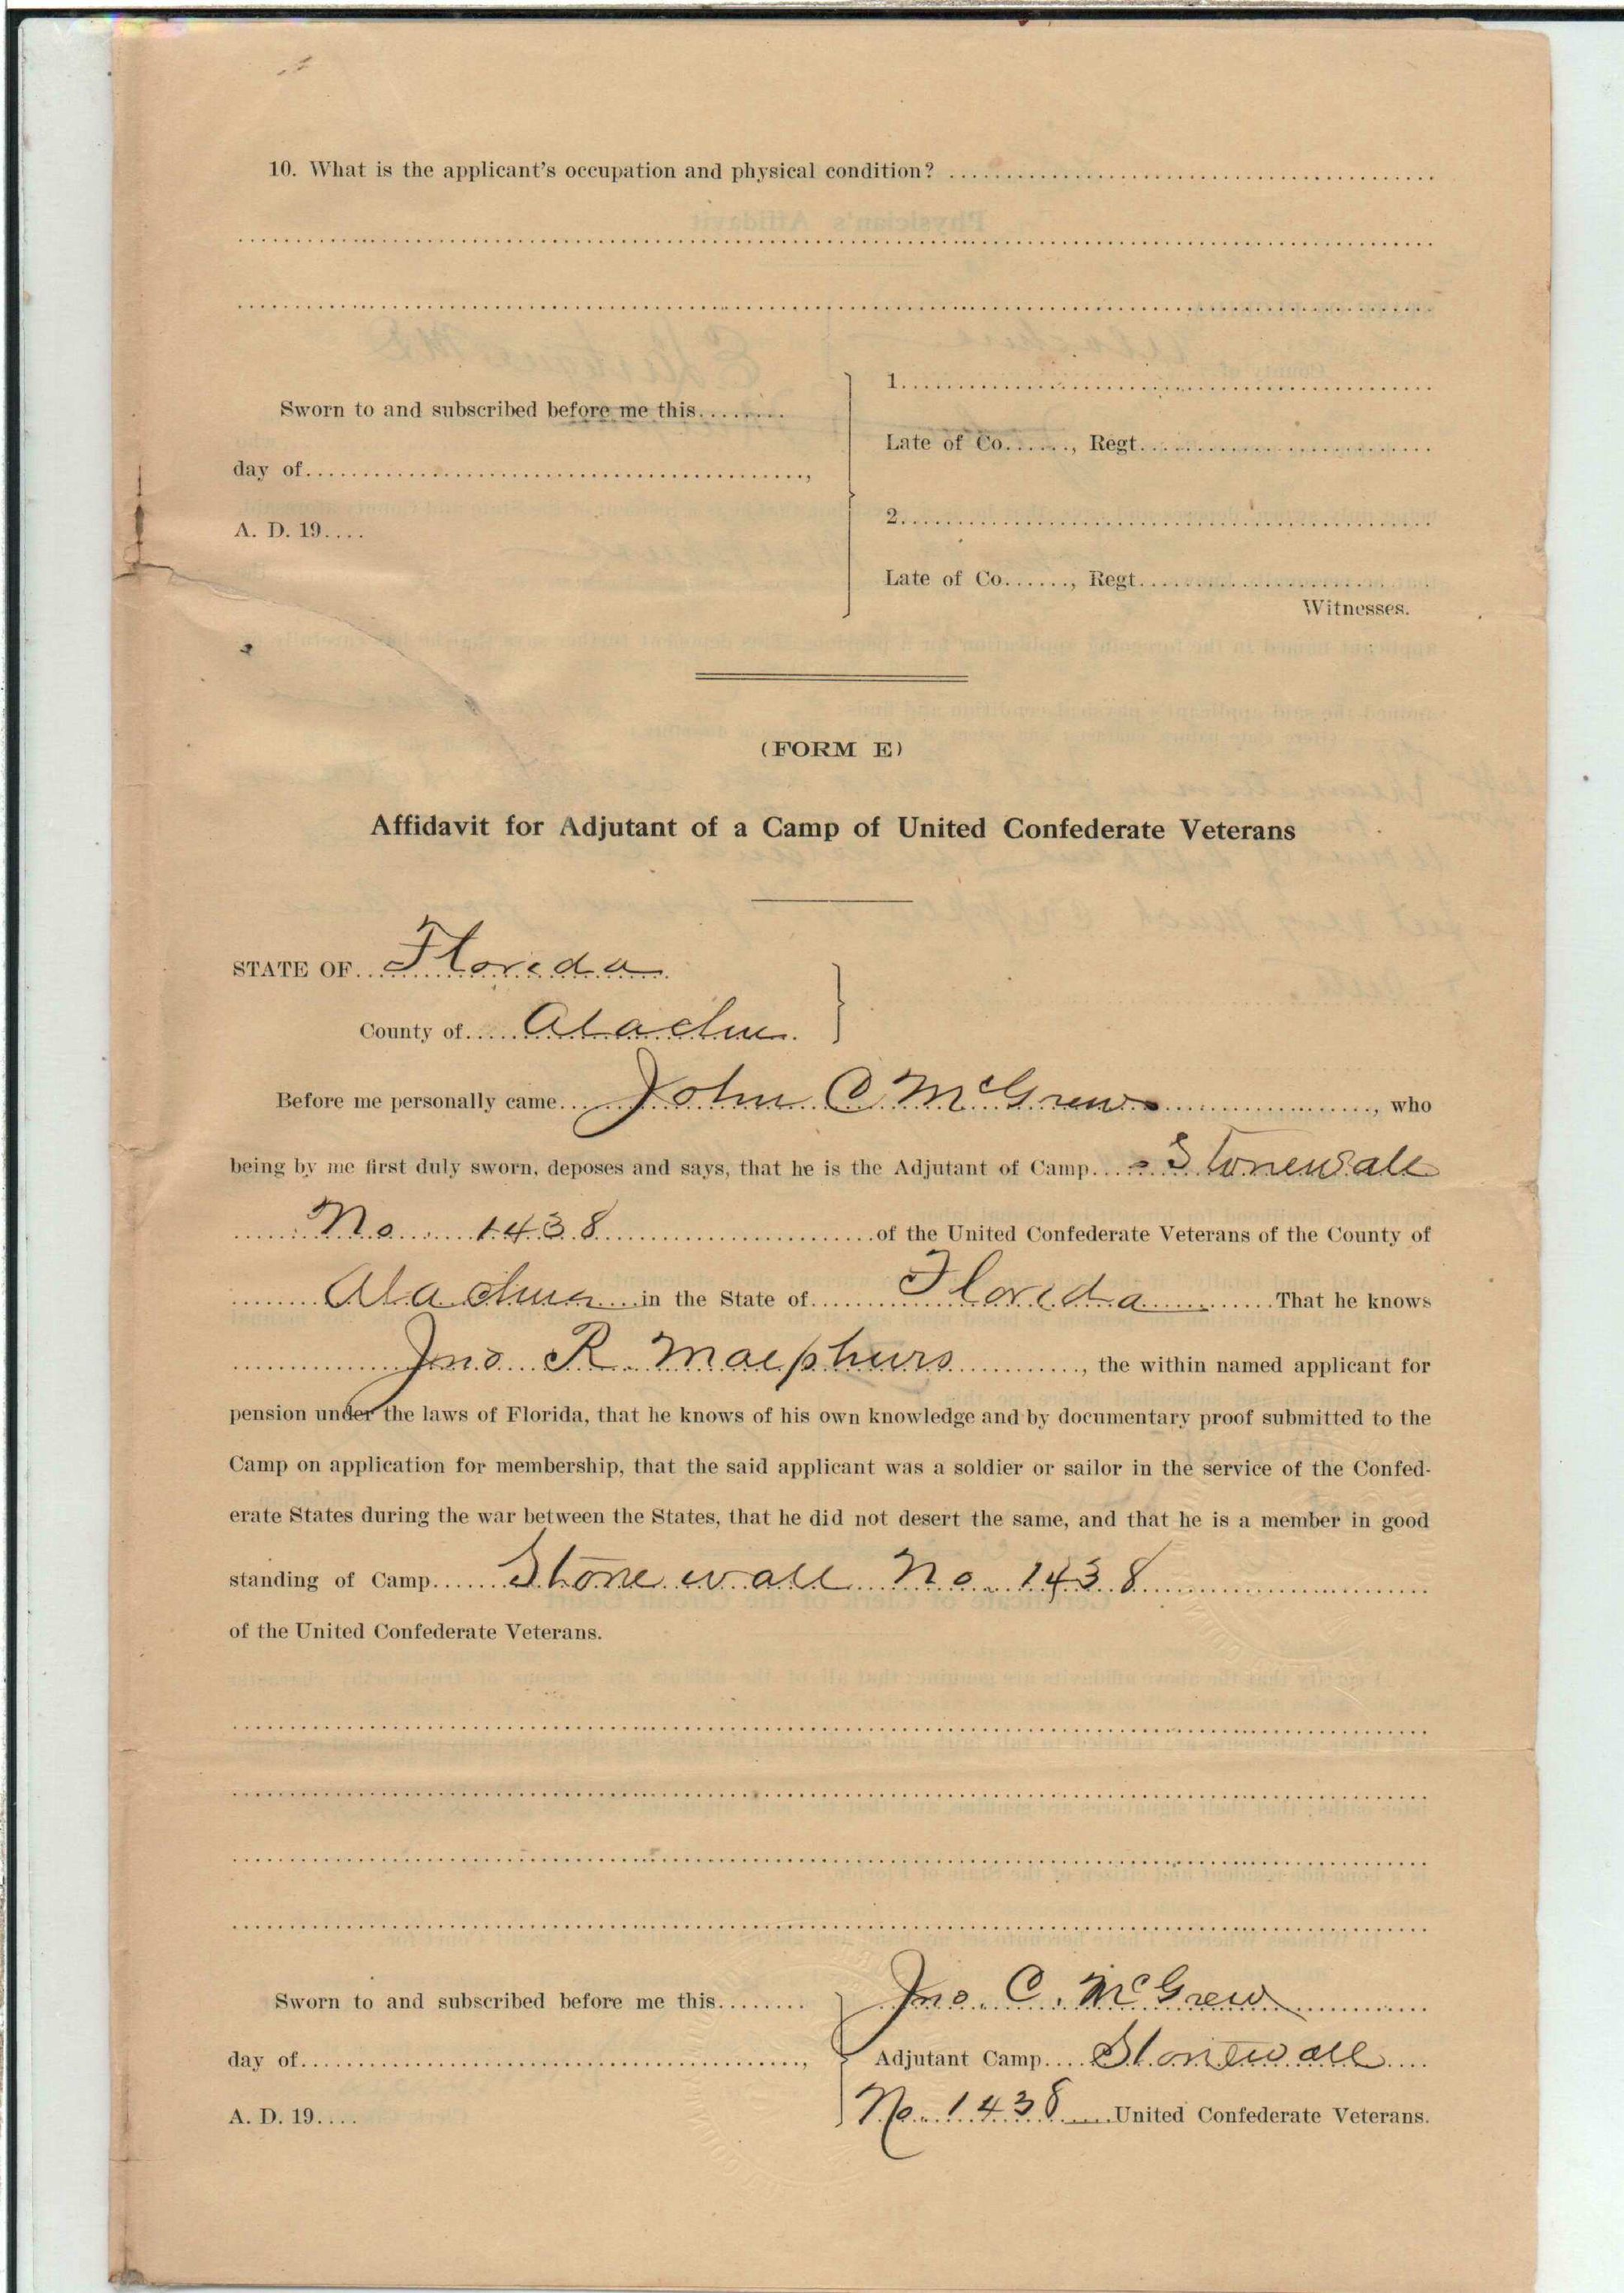 10. What is the applicant's occupation and physical condition?
Sworn to and subscribed before me this
day of ,
A. D. 19
1.
Late of Co. , Regt.
2.
Late of Co. , Regt.
Witnesses.
(FORM E)
Affidavit for Adjutant of a Camp of United Confederate Veterans
STATE OF Florida
County of Alachua
Before me personally came John C McGrew , who
being by me first duly sworn, deposes and says, that he is the Adjutant of Camp Stonewall
No 1438 of the United Confederate Veterans of the County of
Alachua in the State of Florida That he knows
Jno R , the within named applicant for
pension under the laws of Florida, that he knows of his own knowledge and by documentary proof submitted to the
Camp on application for membership, that the said applicant was a soldier or sailor in the service of the Confed-
erate States during the war between the States, that he did not desert the same, and that he is a member in good
standing of Camp Stonewall No 1438
of the United Confederate Veterans.
Sworn to and subscribed before me this
day of ,
A. D. 19
Jno. C. McGrew
Adjutant Camp Stonewall
No. 1438 United Confederate Veterans.